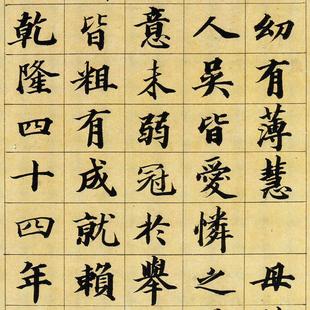 幼有薄慧 母
人吳皆愛憐之
意未弱冠於舉
皆粗有成就賴
乾隆四十四年